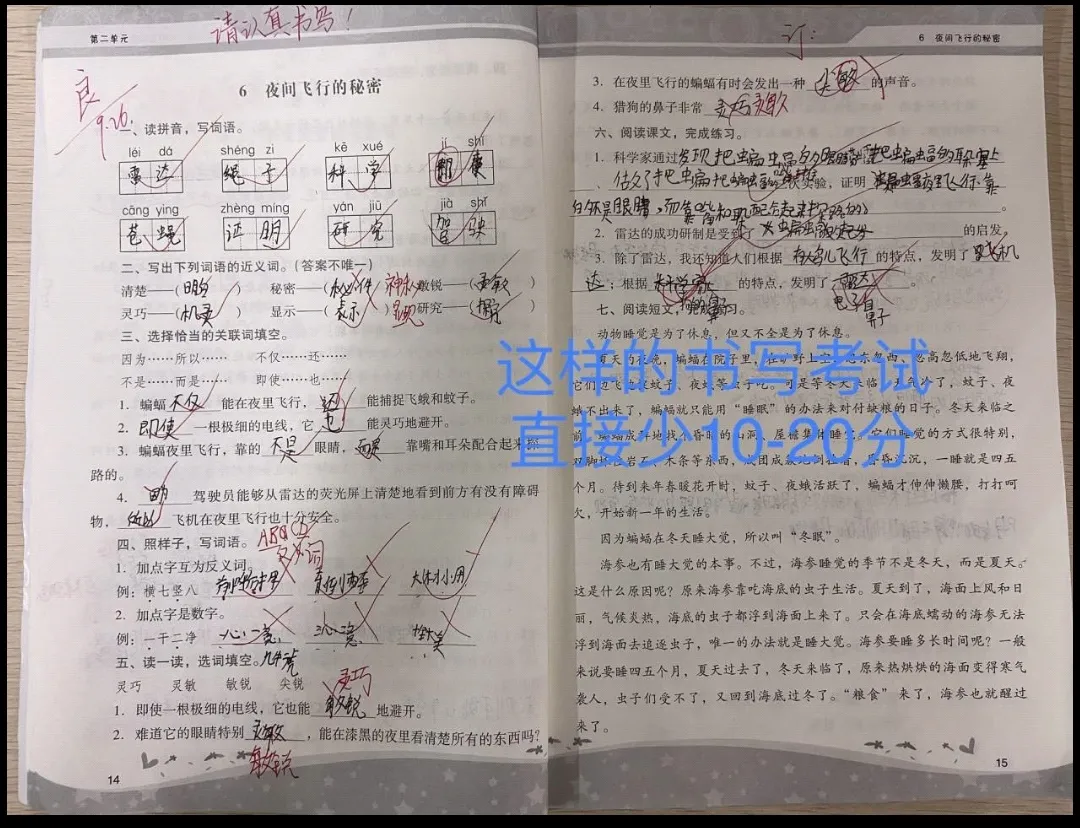 第二单元
请认真书写!
6 夜间飞行的秘密
良
9.26.
一、读拼音，写词语。
léi dá shéng zi kē xué jí shǐ
雷达 绳子 科学
cāng ying zhèng míng yán jiū jià shǐ
苍蝇 证明 研究 驾驶
二、写出下列词语的近义词。（答案不唯一）
清楚——（明白） 秘密——（ ） 敏锐——（ ）
灵巧——（机灵） 显示——（表示） 研究——（ ）
三、选择恰当的关联词填空。
因为……所以…… 不仅……还……
不是……而是…… 即使……也……
1. 蝙蝠不仅能在夜里飞行，还能捕捉飞蛾和蚊子。
2. 即使一根极细的电线，它也能灵巧地避开。
3. 蝙蝠夜里飞行，靠的不是眼睛，而是靠嘴和耳朵配合起来探
路的。
4. 驾驶员能够从雷达的荧光屏上清楚地看到前方有没有障碍
物，所以飞机在夜里飞行也十分安全。
四、照样子，写词语。
反义词
1. 加点字互为反义词。
例：横七竖八 大材小用
2. 加点字是数字。
例：一干二净 一心二意
五、读一读，选词填空。
灵巧 灵敏 敏锐 尖锐
灵巧
1. 即使一根极细的电线，它也能敏锐地避开。
2. 难道它的眼睛特别灵敏，能在漆黑的夜里看清楚所有的东西吗？
敏锐
14
订：
6 夜间飞行的秘密
3. 在夜里飞行的蝙蝠有时会发出一种尖敏的声音。
4. 猎狗的鼻子非常灵巧灵敏
六、阅读课文，完成练习。
1. 科学家通过
次实验，证明
2. 雷达的成功研制是受到了 的启发。
3. 除了雷达，我还知道人们根据 飞行的特点，发明了飞机
；根据 的特点，发明了 。
电子鼻
鼻子
七、阅读短文，完成练习。
动物睡觉是为了休息，但又不全是为了休息。
夏天的夜晚，蝙蝠在院子里，在旷野上空，忽东忽西、忽高忽低地飞翔，
它们边飞边捉蚊子、夜蛾等虫子吃。可是等冬天来临，天气冷了，蚊子、夜
蛾不出来了，蝙蝠就只能用“睡眠”的办法来对付缺粮的日子。冬天来临之
前，蝙蝠成群地找个昏暗的山洞、屋檐集体睡觉。它们睡觉的方式很特别，
双脚抓住岩石、木条等东西，成团成簇地倒挂着，昏昏沉沉，一睡就是四五
个月。待到来年春暖花开时，蚊子、夜蛾活跃了，蝙蝠才伸伸懒腰，打打呵
欠，开始新一年的生活。
因为蝙蝠在冬天睡大觉，所以叫“冬眠”。
海参也有睡大觉的本事。不过，海参睡觉的季节不是冬天，而是夏天。
这是什么原因呢？原来海参靠吃海底的虫子生活。夏天到了，海面上风和日
丽，气候炎热，海底的虫子都浮到海面上来了。只会在海底蠕动的海参无法
浮到海面去追逐虫子，唯一的办法就是睡大觉。海参要睡多长时间呢？一般
来说要睡四五个月，夏天过去了，冬天来临了，原来热烘烘的海面变得寒气
袭人，虫子们受不了，又回到海底过冬了。“粮食”来了，海参也就醒过
来了。
15
这样的书写考试
直接少10-20分